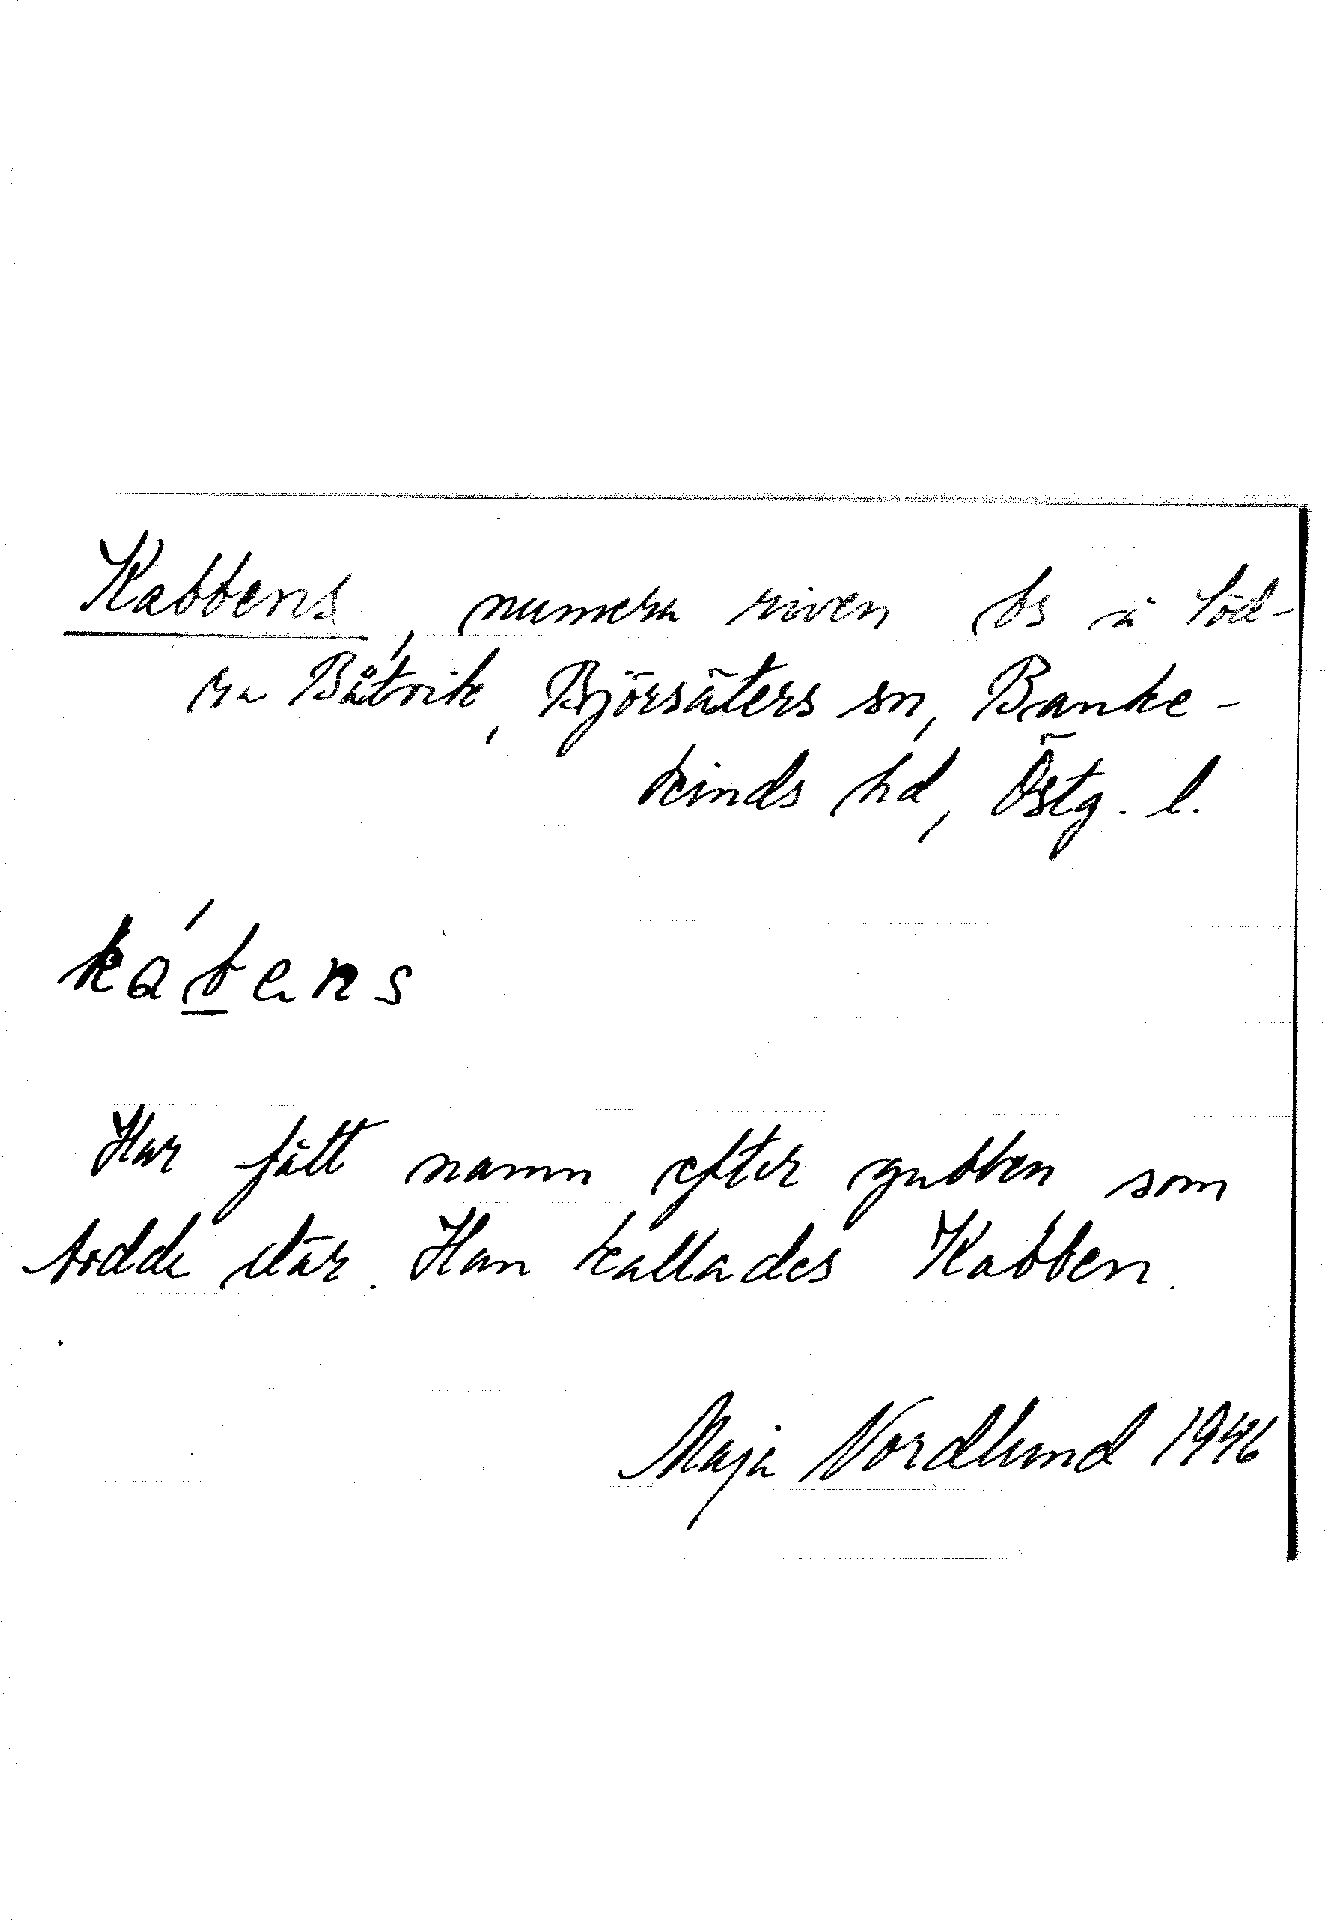 Kabbens, numera riven bs å Söd-
ra Båtvik, Björsäters sn, Banke-
kinds hd, Östg. l.
ká̱bens
Har fått namn efter gubben som
bodde där. Han kallades Kabben.
Maja Nordlund 1946